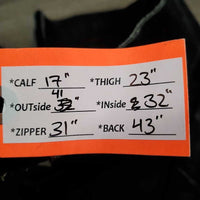 *CALF 17" *THIGH 23"
41
*OUTside " *INside 32"
*ZIPPER 31" *BACK 43"